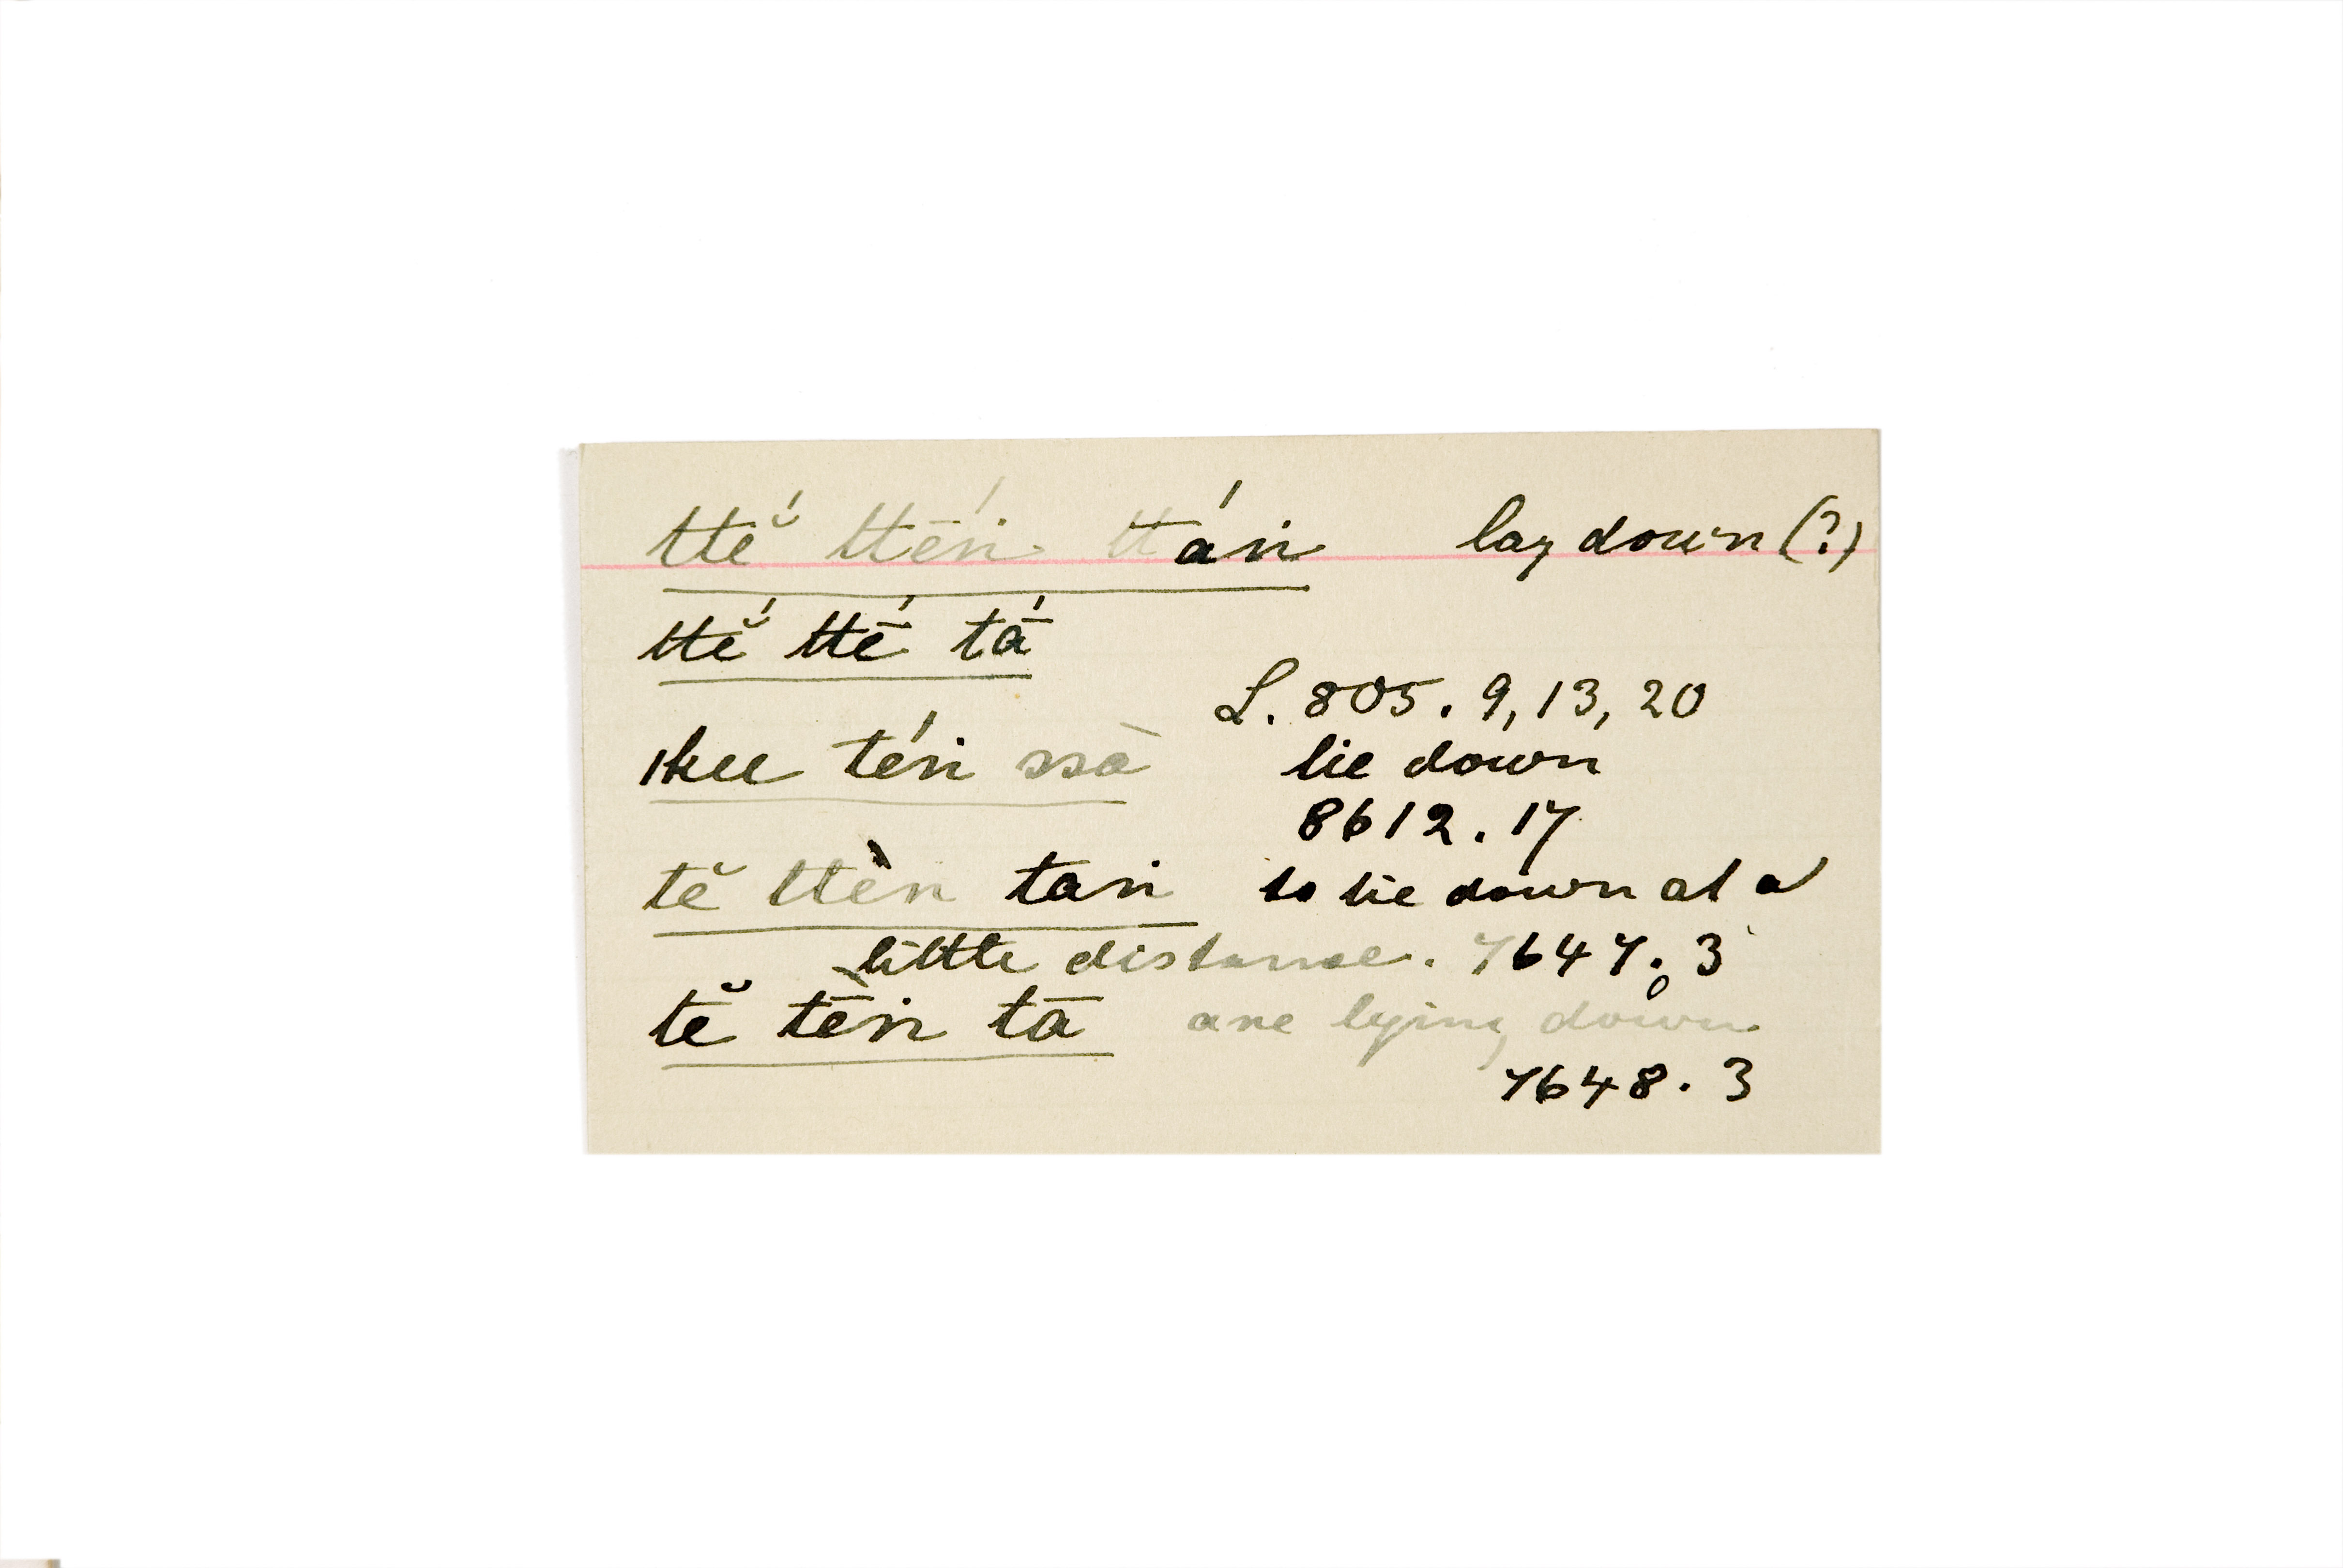 ttĕ́ ttḗn ttán lay down (?)
ttĕ́ ttḗ tā́
L. 805. 9, 13, 20
ǀku tén ssà lie down
8612. 17
tĕ ttèn tan to lie down at a
little distance. 7647. 3
tĕ tḕn tā are lying down
7648. 3